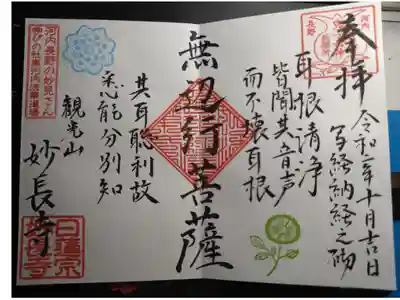 奉拝
令和二年十月吉日
写経納経之砌
耳根清浄
皆聞其音声
而不壊耳根
無辺行菩薩
其耳聡利故
悉能分別知
観光山
妙長寺
日蓮宗
妙長寺
河内長野の妙見さん